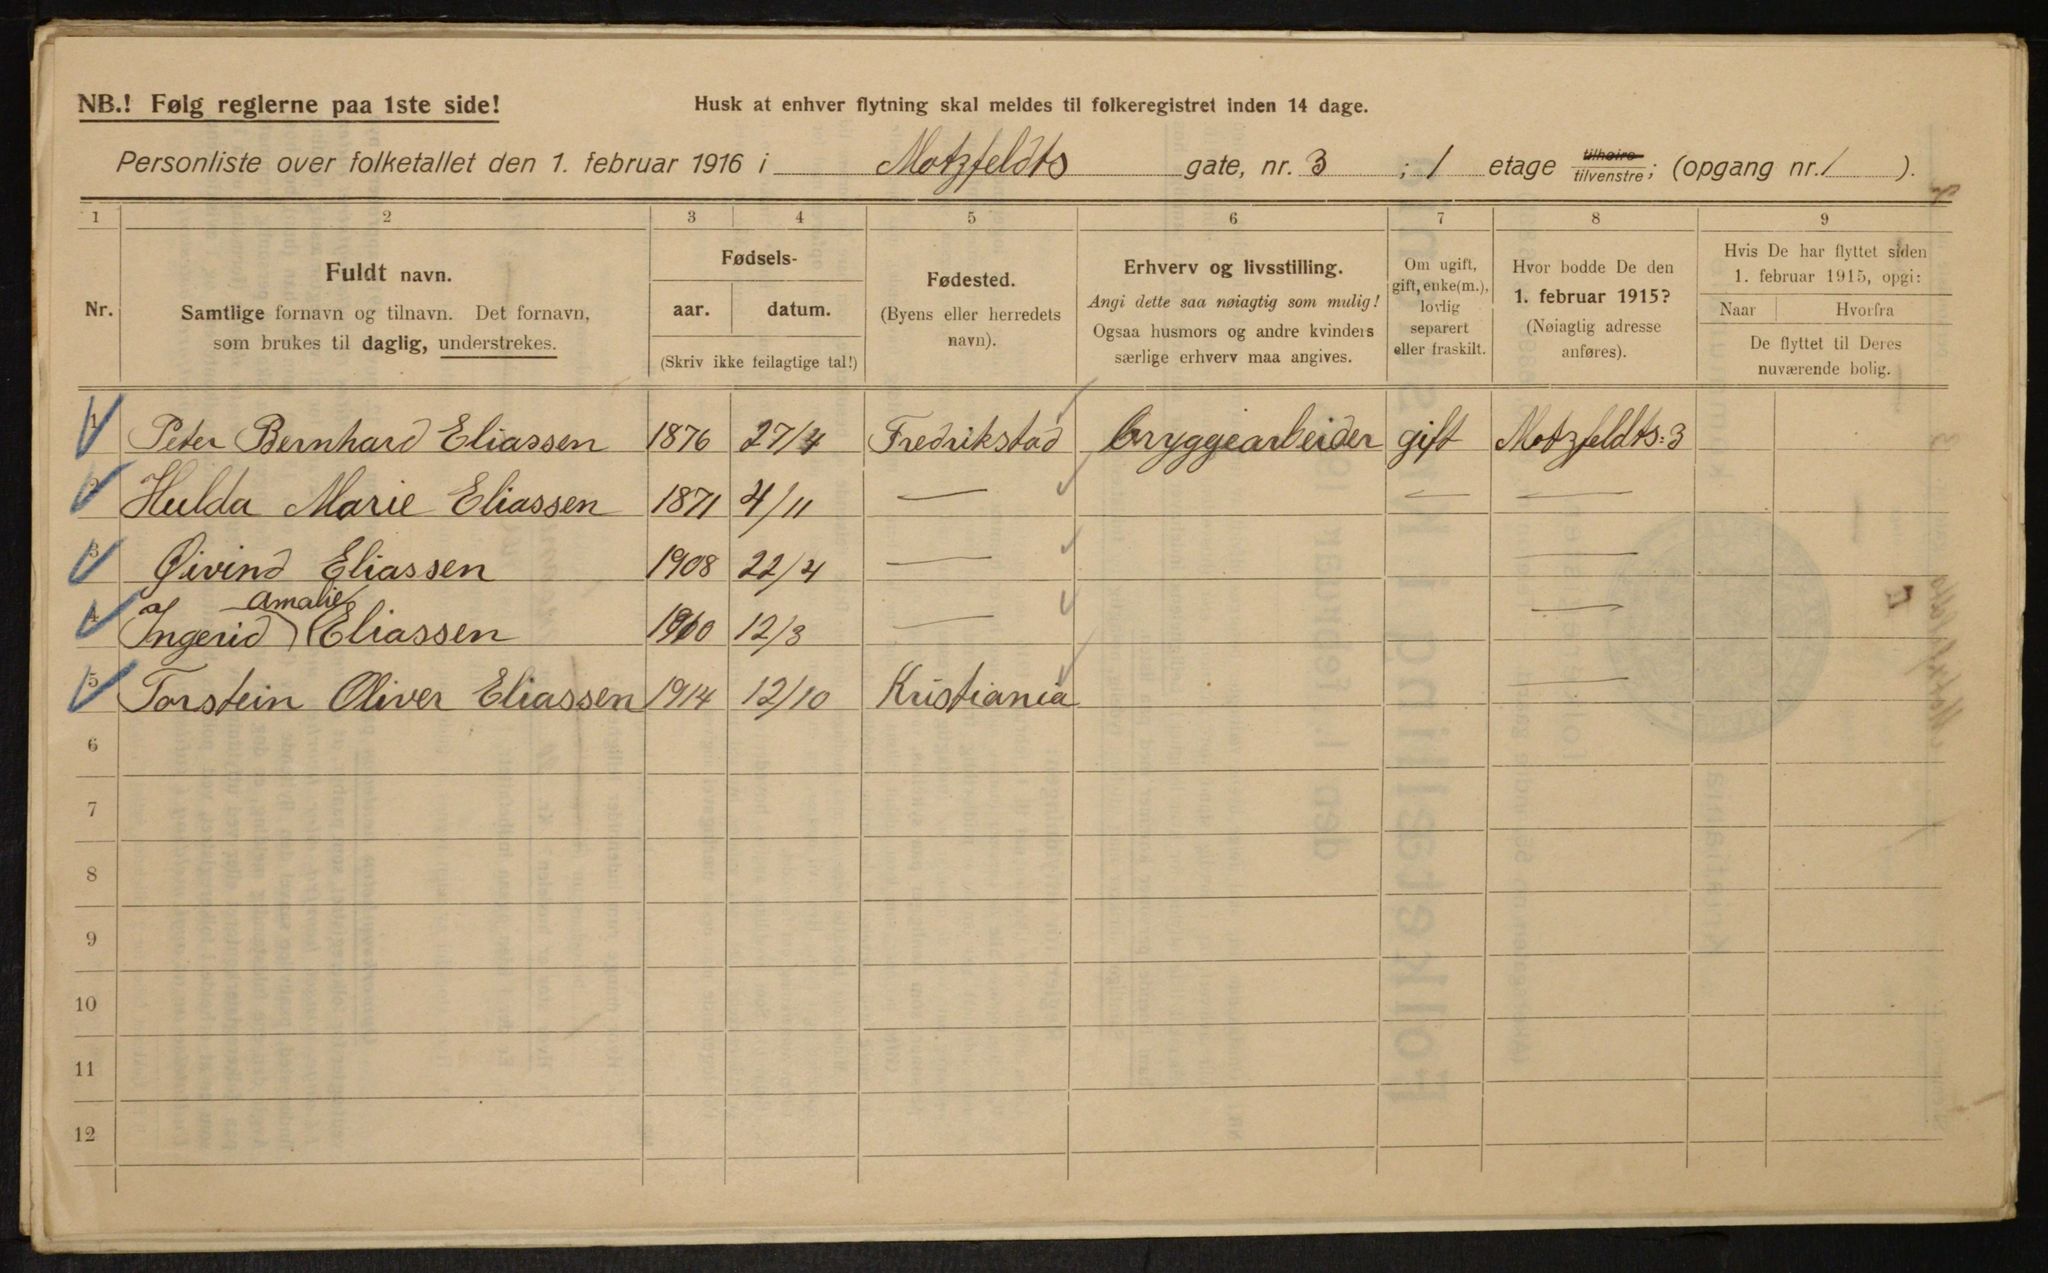 NB.! Følg reglerne paa 1ste side!
Husk at enhver flytning skal meldes til folkeregistret inden 14 dage.
Personliste over folketallet den 1. februar 1916 i Motzfeldts gate, nr. 3 ; 1 etage tilhøire tilvenstre; (opgang nr. 1 ).
1 2 3 4 5 6 7 8 9
Nr.
Fuldt navn.
Samtlige fornavn og tilnavn. Det fornavn,
som brukes til daglig, understrekes.
Fødsels-
aar. datum.
(Skriv ikke feilagtige tal!)
Fødested.
(Byens eller herredets
navn).
Erhverv og livsstilling.
Angi dette saa nøiagtig som mulig!
Ogsaa husmors og andre kvinders
særlige erhverv maa angives.
Om ugift,
gift, enke(m.),
lovlig
separert
eller fraskilt.
Hvor bodde De den
1. februar 1915?
(Nøiagtig adresse
anføres).
Hvis De har flyttet siden
1. februar 1915, opgi:
Naar Hvorfra
De flyttet til Deres
nuværende bolig.
1 Peter Bernhard Eliassen 1876 27/4 Fredrikstad Bryggearbeider gift Motzfeldts: 3
2 Hulda Marie Eliassen 1871 4/11 — — —
3 Øivind Eliassen 1908 22/4 — —
Amalie
4 Ingerid Eliassen 1910 12/3 — —
5 Torstein Oliver Eliassen 1914 12/10 Kristiania —
6
7
8
9
10
11
12